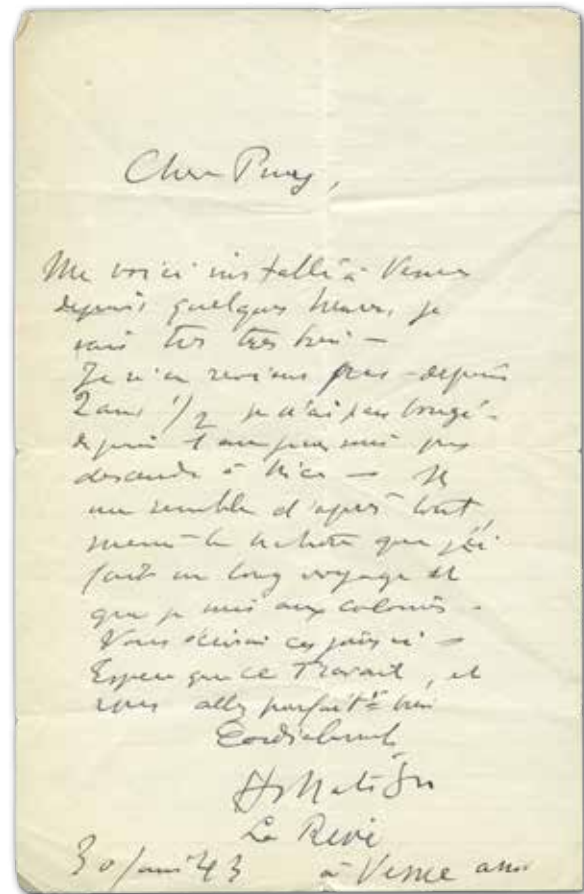 Cher Puy,
Me voici installé à Vence
depuis quelques heures, je
suis très très bien –
Je n'en reviens pas – depuis
2 ans 1/2 je n'ai pas bougé –
depuis 1 an je ne suis pas
descendu à Nice – Il
me semble d'après tout,
même la que j'ai
fait un long voyage et
que je suis aux colonies –
Vous écrirai ces jours ci –
Espère que ce Travail, et
vous allez parfait^t bien
Cordialement
H. Matisse
Le Rêve
30 juin 43 à Vence